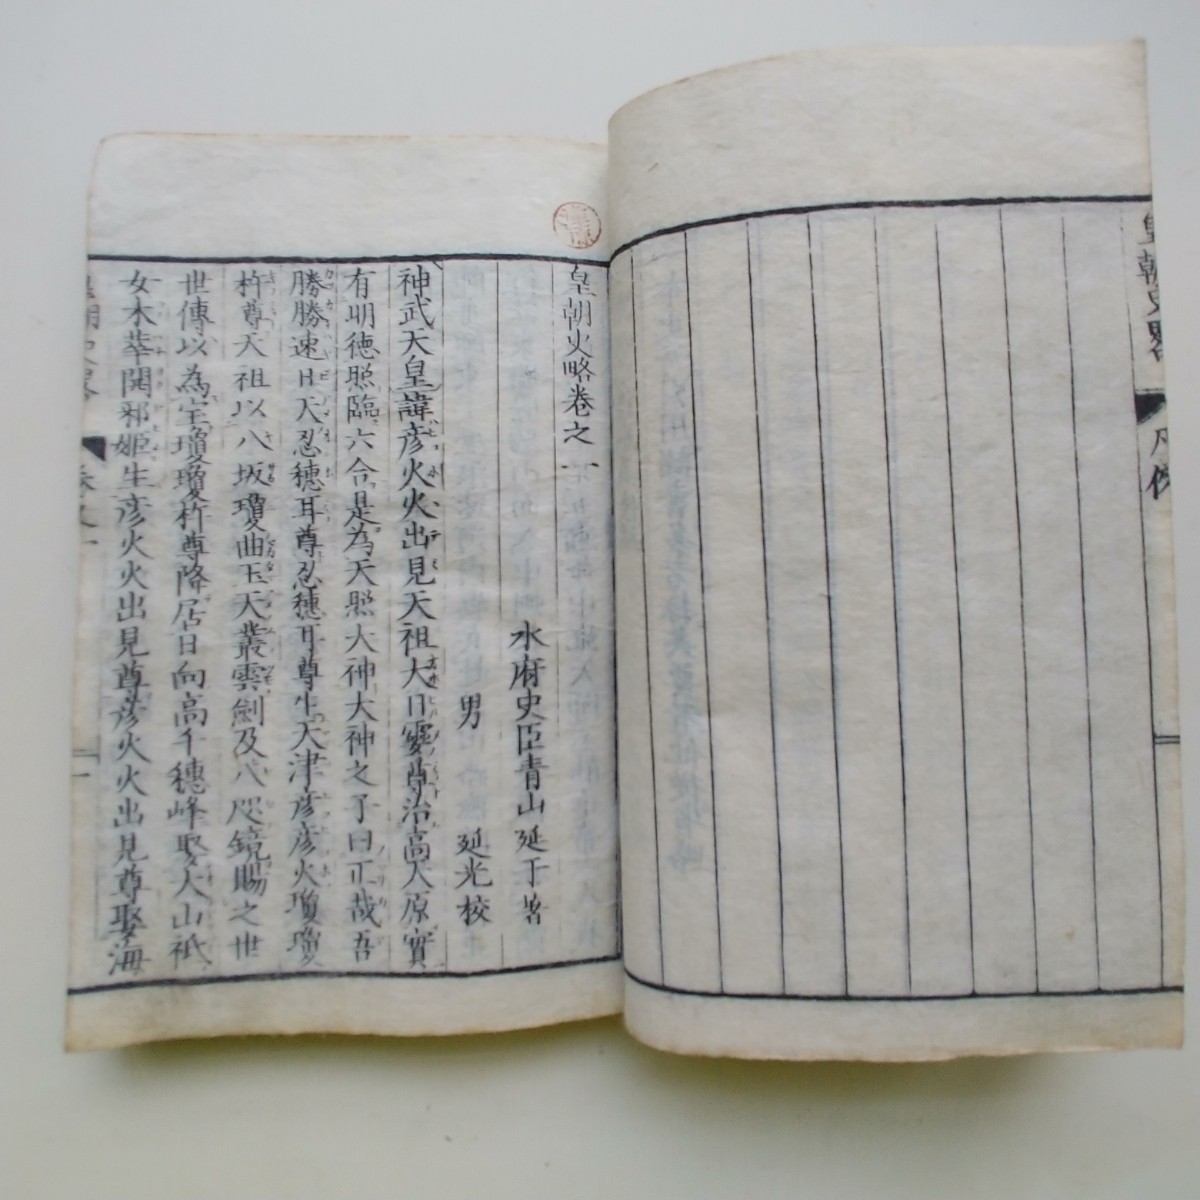 皇朝史略
凡例
皇朝史略卷之一
水府史臣青山延于著
男 延光校
神武天皇諱彦火火出見天祖大日孁尊治高天原實
有明徳照臨六合是為天照大神大神之子曰正哉吾
勝勝速日天忍穗耳尊忍穗耳尊生天津彦彦火瓊瓊
杵尊天祖以八坂瓊曲玉天叢雲劍及八咫鏡賜之世
世傳以為宝瓊瓊杵尊降居日向高千穗峰娶大山祇
女木華開耶姫生彦火火出見尊彦火火出見尊娶海
皇朝史略
卷之一
一